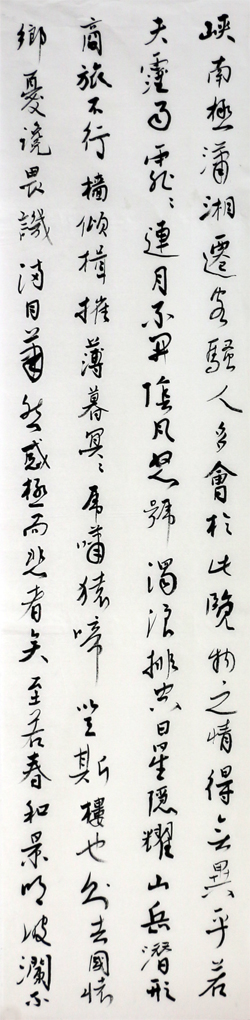 峽南極瀟湘遷客騷人多會於此覽物之情得無異乎若
夫霪雨霏霏連月不開陰風怒號濁浪排空日星隱耀山岳潛形
商旅不行檣傾楫摧薄暮冥冥虎嘯猿啼登斯樓也則去國懷
鄉憂讒畏譏滿目蕭然感極而悲者矣至若春和景明波瀾不